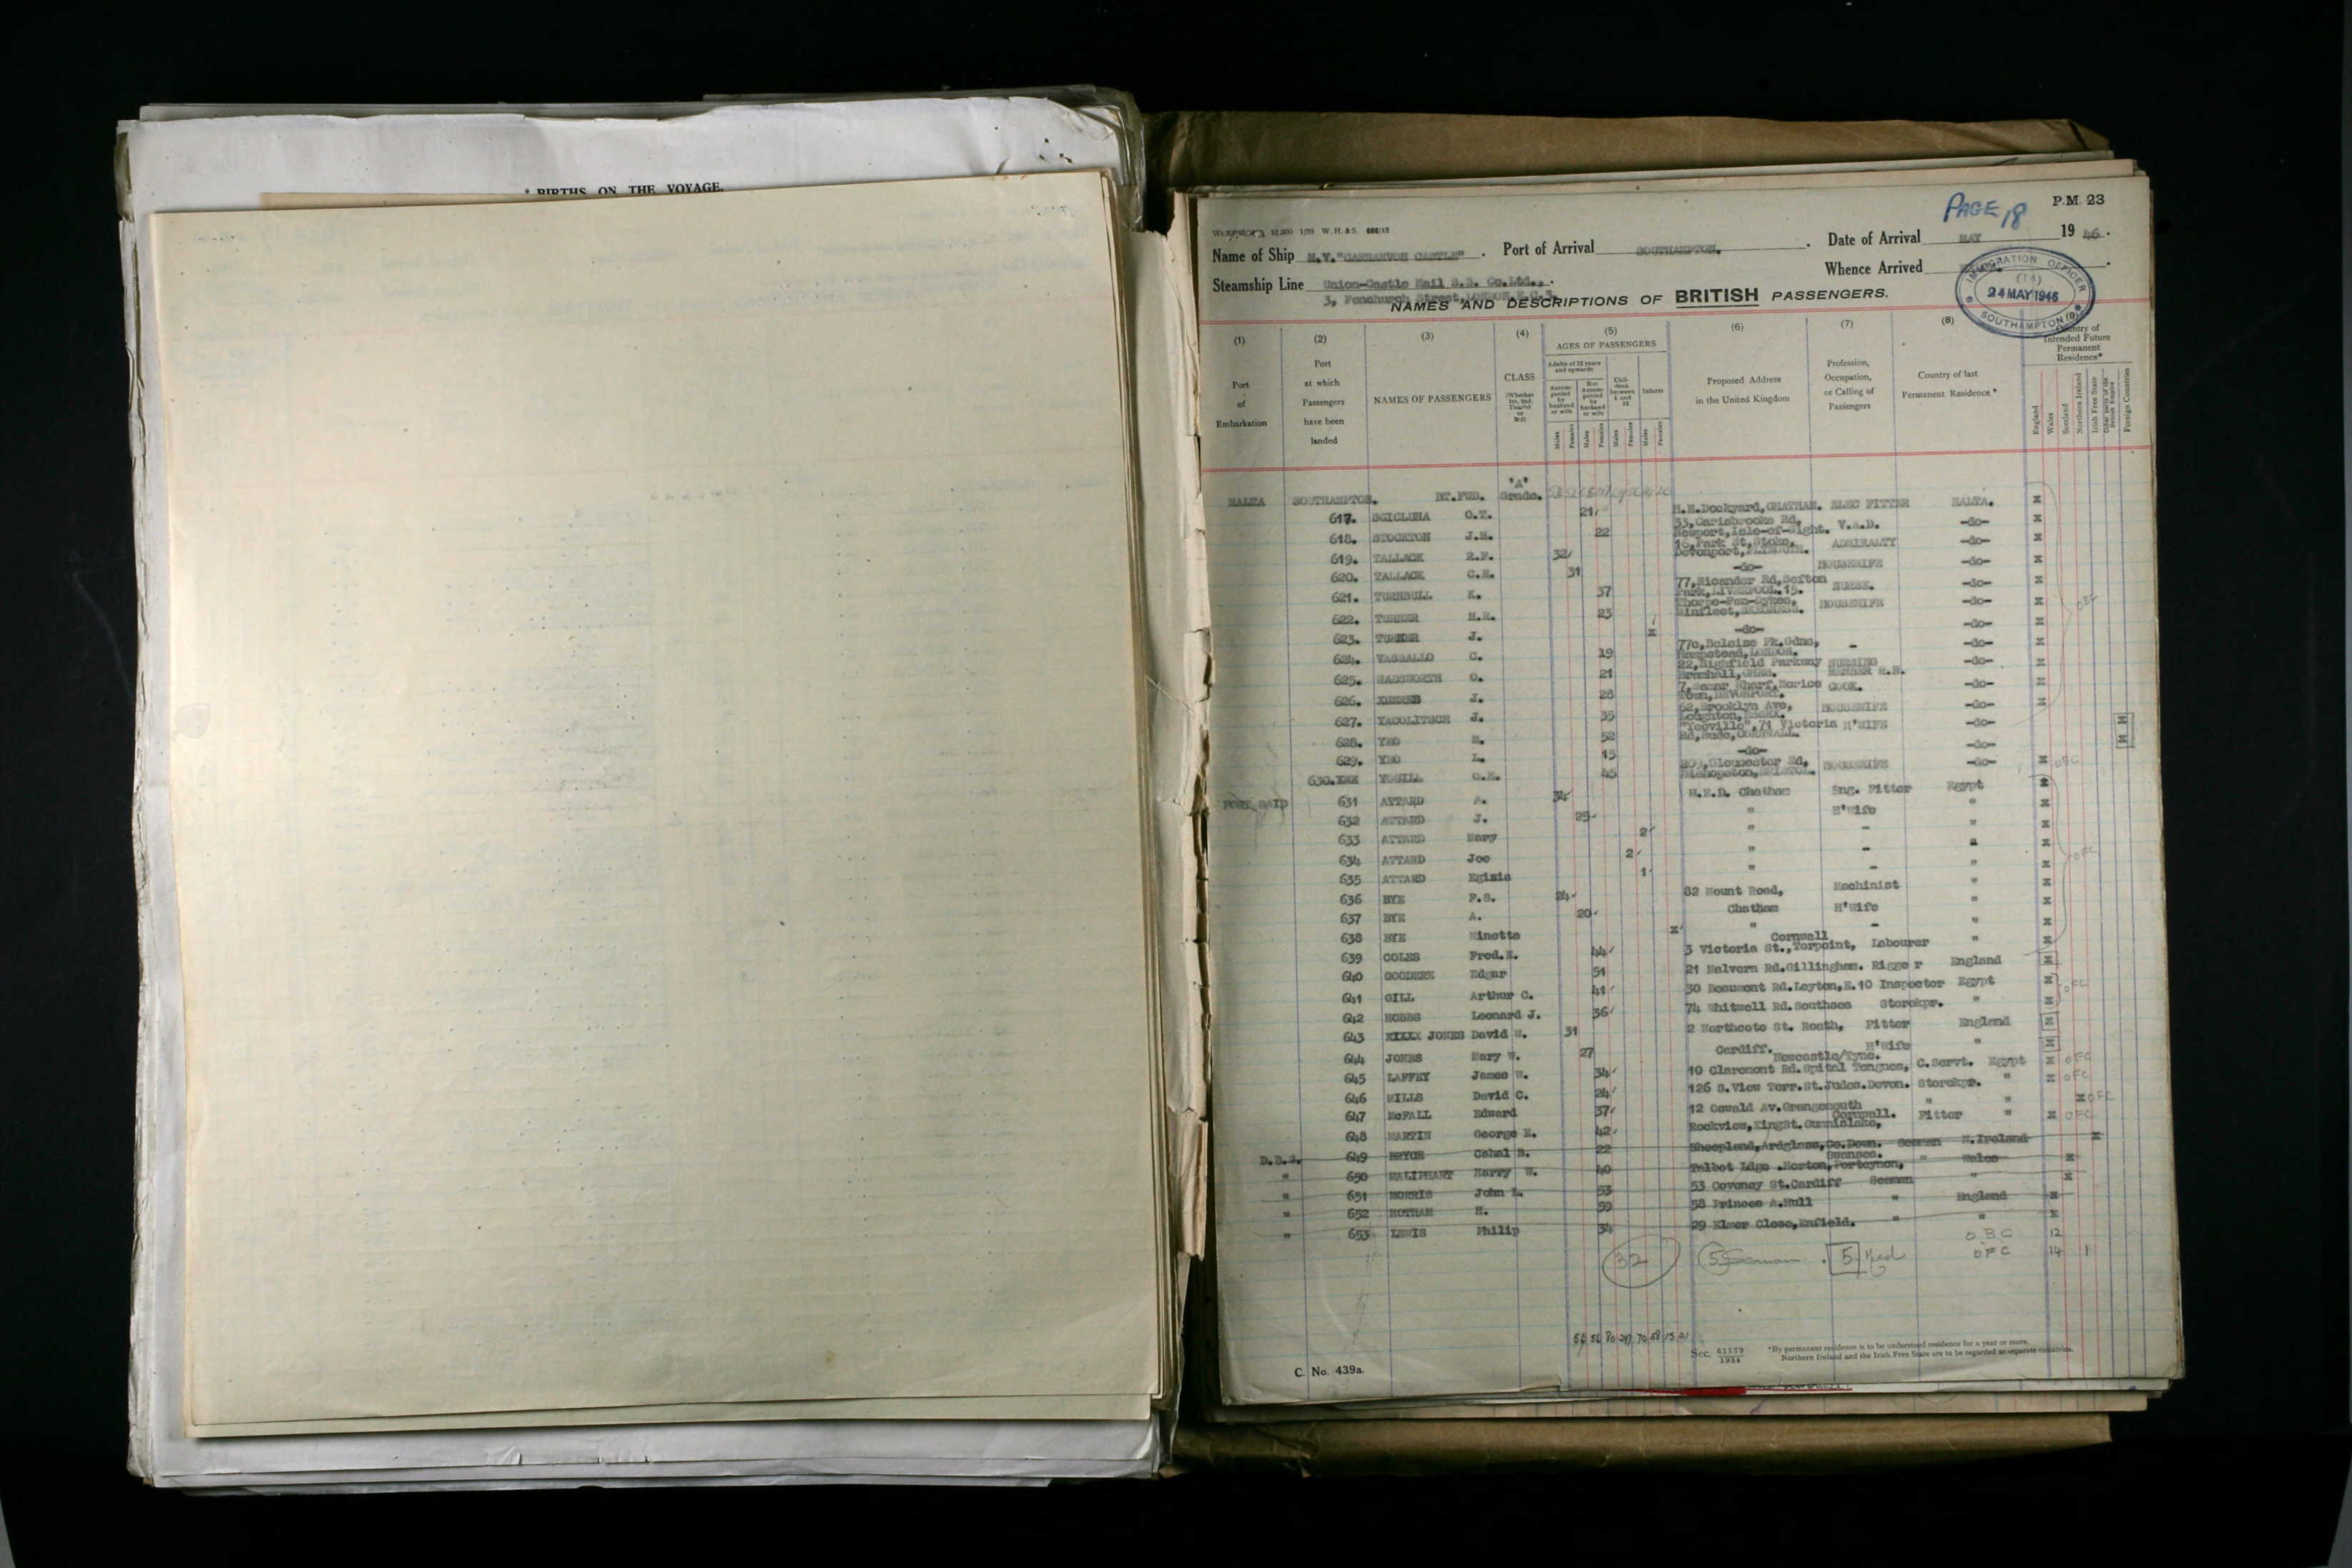 * BIRTHS ON THE VOYAGE.
PAGE 18
P.M. 23
10,000 1/39 W.H.&S. 686/13
Name of Ship M.V."CARNARVON CASTLE" . Port of Arrival SOUTHAMPTON. . Date of Arrival MAY 19 46.
Steamship Line Union-Castle Mail S.S. Co.Ltd., . Whence Arrived
3, Fenchurch Street,LONDON,E.C.3.
IMMIGRATION OFFICER
(14)
24 MAY 1946
SOUTHAMPTON
NAMES AND DESCRIPTIONS OF BRITISH PASSENGERS.
(1) (2) (3) (4) (5) (6) (7) (8) (9)
Port of Embarkation
Port at which Passengers have been landed
NAMES OF PASSENGERS
CLASS (Whether 1st, 2nd, Tourist or 3rd)
AGES OF PASSENGERS
Adults of 12 years and upwards
Accompanied by husband or wife
Not Accompanied by husband or wife
Children between 1 and 12
Infants
Males Females Males Females Males Females Males Females
Proposed Address in the United Kingdom
Profession, Occupation, or Calling of Passengers
Country of last Permanent Residence *
Country of Intended Future Permanent Residence*
England Wales Scotland Northern Ireland Irish Free State Other parts of the British Empire Foreign Countries
MALTA SOUTHAMPTON. BT.FWD. 'A' Grade.
617. SCICLUNA O.T. 21 H.M.Dockyard,CHATHAM. ELEC FITTER MALTA. x
618. STOCKTON J.M. 22 33,Carisbrooke Rd, Newport,Isle-of-Wight. V.A.D. -do- x
619. TALLACK R.F. 32 16,Park St,Stoke, Devonport,PLYMOUTH. ADMIRALTY -do- x
620. TALLACK C.E. 31 -do- HOUSEWIFE -do- x
621. TURNBULL K. 37 77,Nicander Rd,Sefton Park,LIVERPOOL.15. NURSE. -do- x
622. TURNER M.R. 23 Thorpe-Fen-Dykes, Wainfleet,SKEGNESS. HOUSEWIFE -do- x
623. TURNER J. x -do- -do- x
624. VASSALLO C. 19 77c,Belsize Pk.Gdns, Hampstead,LONDON. - -do- x
625. WADSWORTH O. 21 22,Highfield Parkway Bramhall,CHES. NURSING MEMBER R.N. -do- x
626. XUEREB J. 28 7, Wharf,Morice Town,DEVONPORT. COOK. -do- x
627. YACOLITSCH J. 35 62,Brooklyn Ave, Loughton,ESSEX. HOUSEWIFE -do- x
628. YEO M. 52 "Yeoville",71 Victoria Rd,Bude,CORNWALL. H'WIFE -do- x
629. YEO L. 15 -do- -do- x
630. YOUILL G.E. 45 209,Gloucester Rd, Bishopston,BRISTOL. HOUSEWIFE -do- x OFC
PORT SAID 631 ATTARD A. 34 H.M.D. Chatham Eng. Fitter Egypt x
632 ATTARD J. 25 " H'Wife " x
633 ATTARD Mary 2 " - " x
634 ATTARD Joe 2 " - " x
635 ATTARD 1 " - " x
636 BYE F.S. 24 82 Mount Road, Machinist " x
637 BYE A. 20 Chatham H'Wife " x
638 BYE Minetta x " - " x
639 COLES Fred.E. 44 3 Victoria St.,Torpoint, Cornwall Labourer " x
640 GOODERE Edgar 51 21 Malvern Rd.Gillingham. Rigger England x
641 GILL Arthur C. 41 30 Beaumont Rd.Leyton,E.10 Inspector Egypt x
642 HOBBS Leonard J. 36 74 Whitwell Rd.Southsea Storekpr. " x
643 JONES David W. 31 2 Northcote St. Roath, Fitter England x
644 JONES Mary W. 27 Cardiff. H'Wife " x
645 LAFFEY James W. 34 10 Claremont Rd.Spital Tongues, Newcastle/Tyne. C.Servt. Egypt x OFC
646 MILLS David C. 24 126 S.View Terr.St.Judes.Devon. Storekpr. " x OFC
647 McFALL Edward 37 12 Oswald Av.Grangemouth " " x OFC
648 MARTIN George E. 42 Rockview,KingSt.Gunnislake, Cornwall. Fitter " x OFC
D.B.S. 649 BRYCE Cahal B. 22 Sheepland,Ardglass,Co.Down. Seaman N.Ireland x
" 650 MALIPHANT Harry W. 40 Talbot Ldge .Horton,Porteynon, Swansea. " Wales x
" 651 MORRIS John L. 53 53 Coveney St.Cardiff Seaman " x
" 652 ROTHAM H. 59 58 Princes A.Hull " England x
" 653 LEWIS Philip 34 29 Elmer Close,Enfield. " " x
32 5 Seaman . 5 Med
OBC 12
OFC 14 1
Sec. 61779/1934
*By permanent residence is to be understood residence for a year or more.
Northern Ireland and the Irish Free State are to be regarded as separate countries.
C. No. 439a.